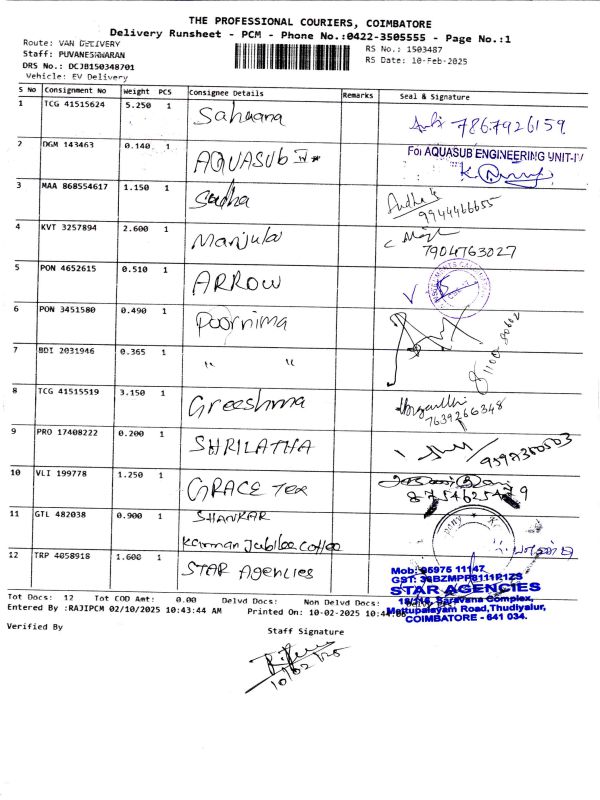 THE PROFESSIONAL COURIERS, COIMBATORE
Delivery Runsheet - PCM - Phone No.:0422-3505555 - Page No.:1
Route: VAN DELIVERY
Staff: PUVANESHWARAN
DRS No.: DCJB150348701
Vehicle: EV Delivery
RS No.: 1503487
RS Date: 10-Feb-2025
S No Consignment No Weight PCS Consignee Details Remarks Seal & Signature
1 TCG 41515624 5.250 1 Sahaana 7867926159
2 DGM 143463 0.140 1 AQUASUB IV For AQUASUB ENGINEERING UNIT-IV
3 MAA 868554617 1.150 1 Sudha Sudha 9944466655
4 KVT 3257894 2.600 1 Manjula 7904763027
5 PON 4652615 0.510 1 ARROW
6 PON 3451580 0.490 1 Poornima
7 BDI 2031946 0.365 1 " "
8 TCG 41515519 3.150 1 Greeshma 7639266348
9 PRO 17408222 0.200 1 SHRILATHA 9597350503
10 VLI 199778 1.250 1 GRACE Tex
11 GTL 482038 0.900 1 SHANKAR
Karman Jubilee Coffee
12 TRP 4058918 1.600 1 STAR Agencies
Mob: 95975 11147
GST:
STAR AGENCIES
Saravana Complex,
Mettupalayam Road, Thudiyalur,
COIMBATORE - 641 034.
Tot Docs: 12 Tot COD Amt: 0.00 Delvd Docs: Non Delvd Docs:
Entered By :RAJIPCM 02/10/2025 10:43:44 AM Printed On: 10-02-2025
Verified By
Staff Signature
10/02/25